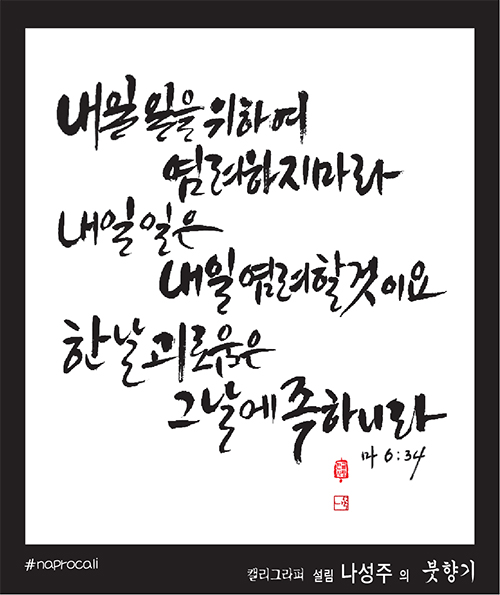 내일 일을 위하여
염려하지마라
내일 일은
내일 염려할것이요
한날 괴로움은
그날에 족하니라
마 6:34
#naprocali
캘리그라퍼 설림 나성주 의 붓향기